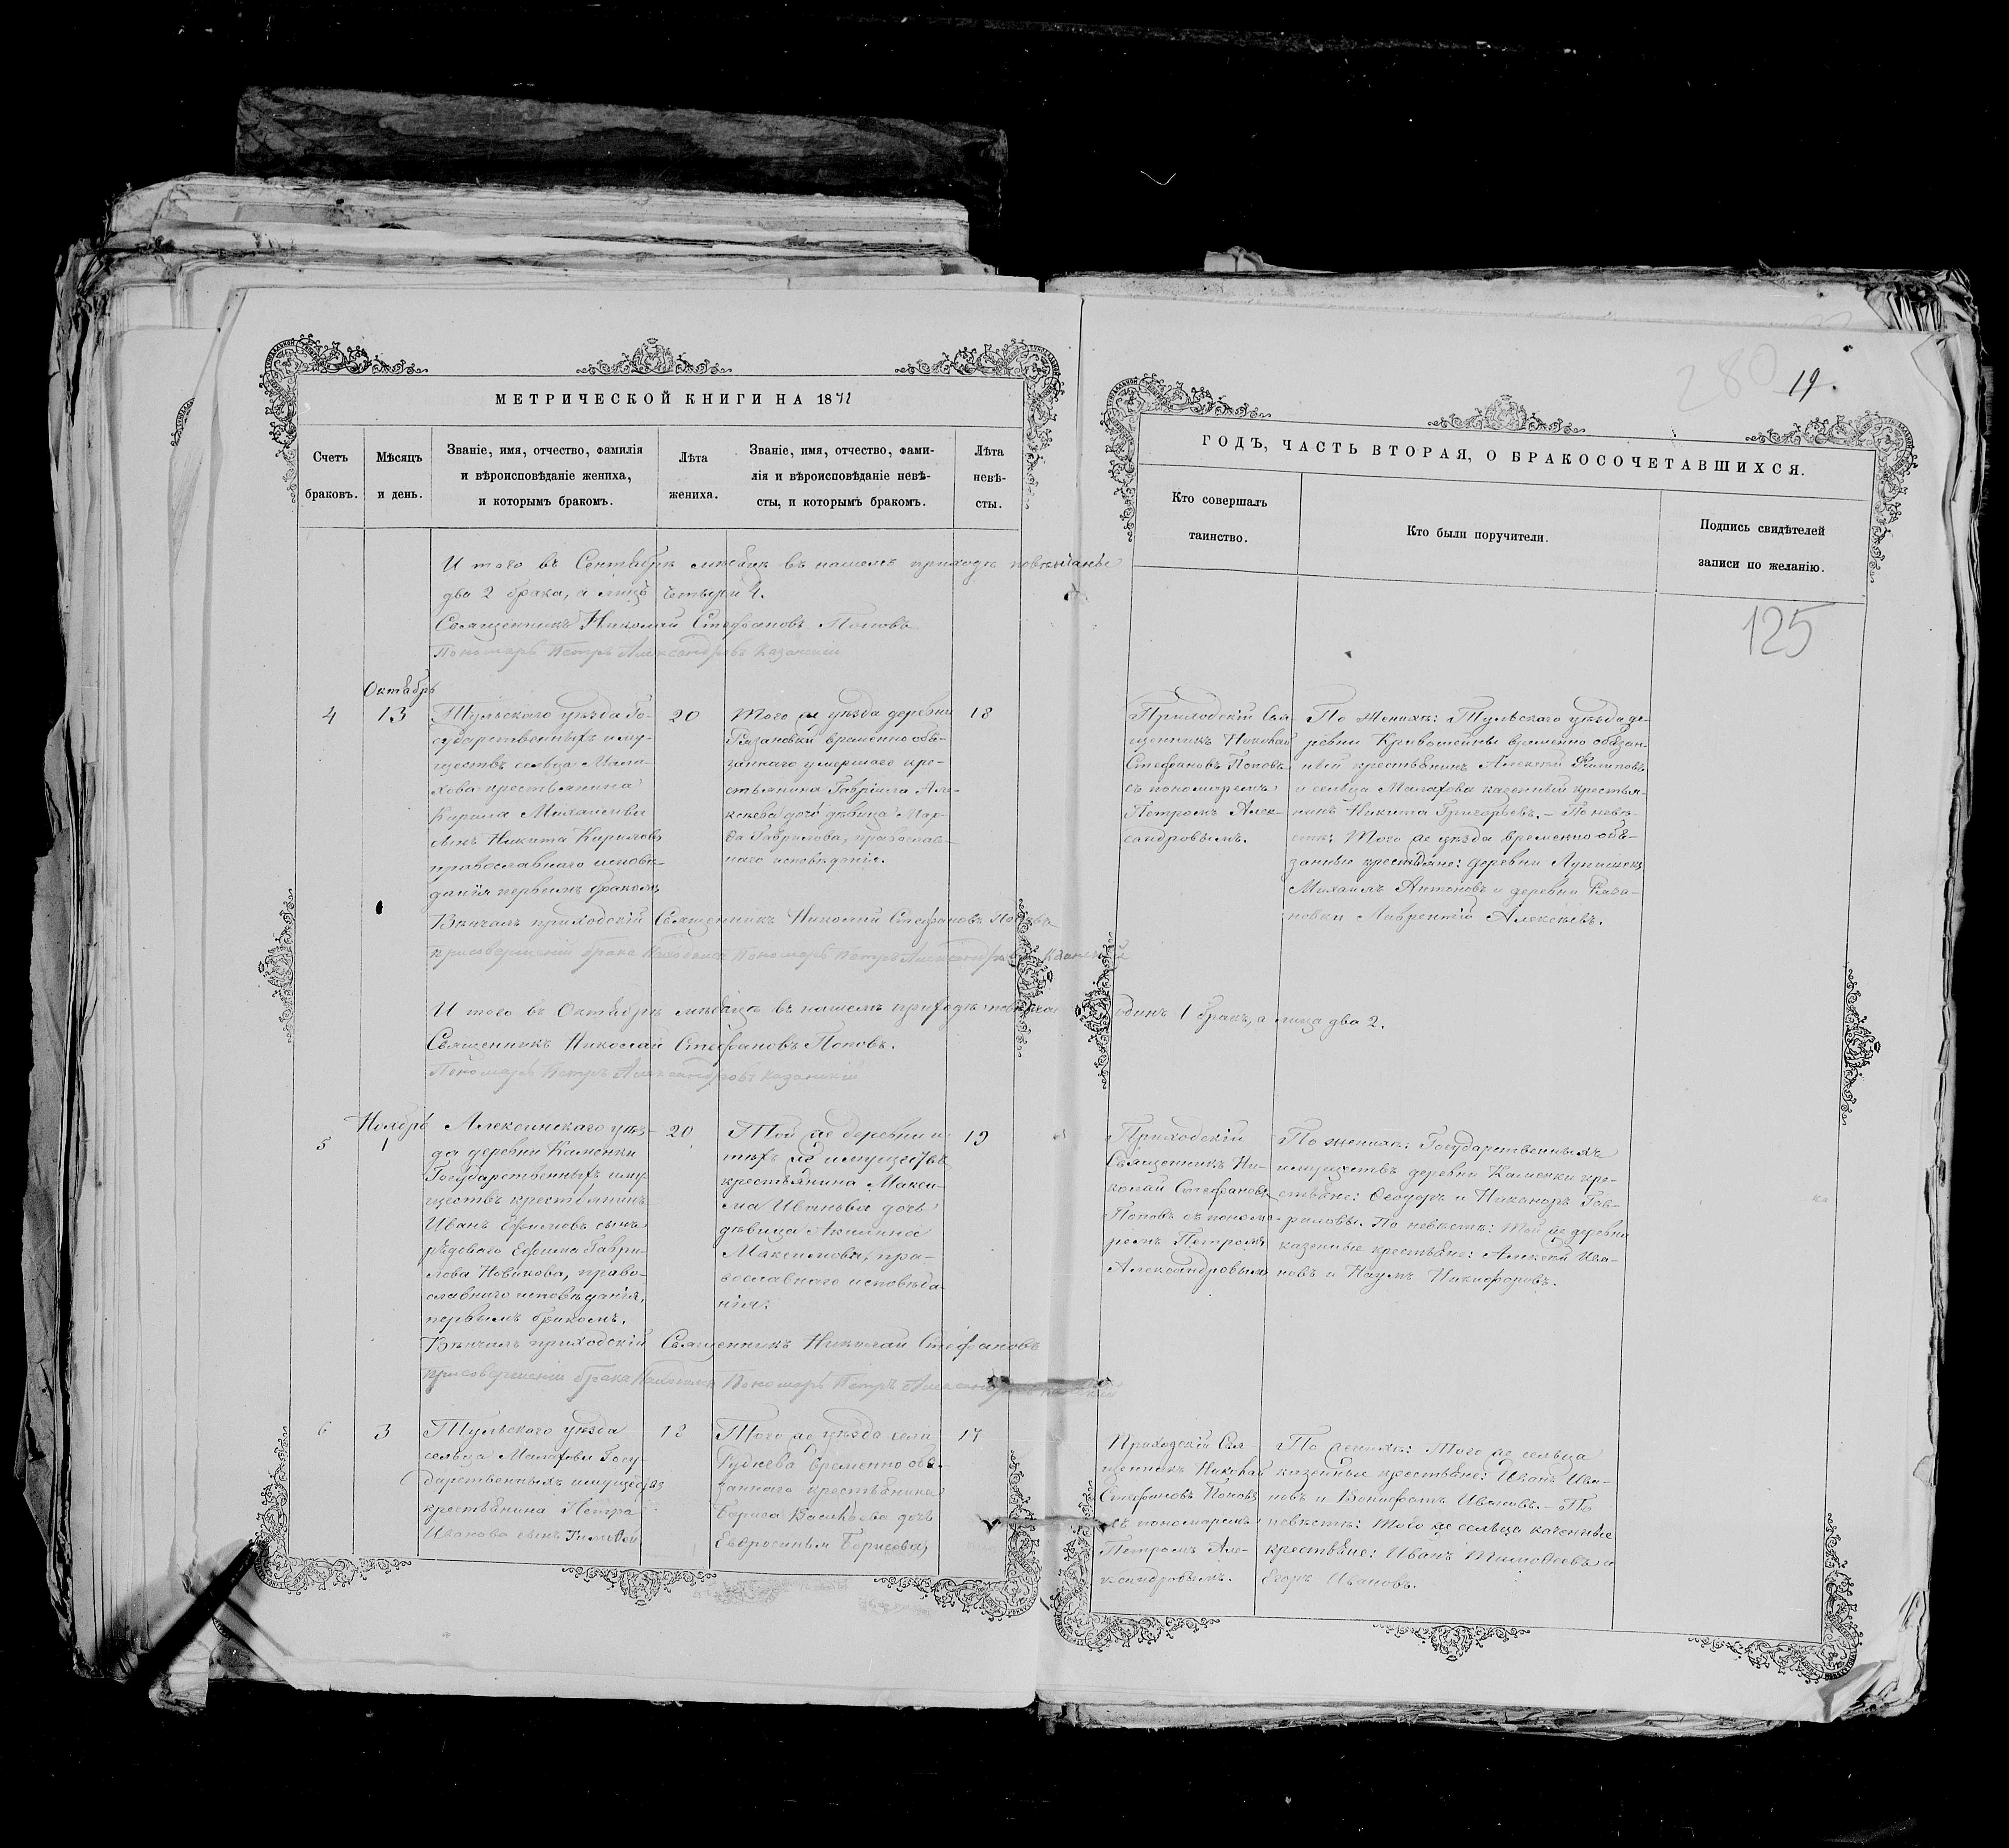 280 19.
МЕТРИЧЕСКОЙ КНИГИ НА 1872
Счетъ браковъ.
Мѣсяцъ и день.
Званіе, имя, отчество, фамилія
и вѣроисповѣданіе жениха,
и которымъ бракомъ.
Лѣта жениха.
Званіе, имя, отчество, фами-
лія и вѣроисповѣданіе невѣ-
сты, и которымъ бракомъ.
Лѣта
невѣ-
сты.
И того въ Сентябрѣ мѣсяцѣ въ нашемъ приходѣ повѣнчаны
два 2 брака, а лицъ четыри 4.
Священникъ Николай Стефановъ Поповъ
Пономарь Петръ Александровъ Казанскій
Октябрь
4
13
Тульскаго уѣзда Го-
сударственныхъ иму-
ществъ сельца Мала-
хова крестьянина
Кирила Михаилова
сынъ Никита Кириловъ
православнаго исповѣ-
данія первымъ бракомъ
20
Того же уѣзда деревни
Рязановки временно обя-
заннаго умершаго кре-
стьянина Гавріила Але-
ксѣева дочь дѣвица Мар-
ѳа Гаврилова, православ-
наго исповѣданія.
18
Вѣнчалъ приходскій Священникъ Николай Стефановъ Поповъ
При совершеніи брака Находился Пономарь Петръ Александровъ Казанскій
И того въ Октябрѣ мѣсяцѣ въ нашемъ приходѣ повѣнчанъ одинъ 1 бракъ, а лица два 2.
Священникъ Николай Стефановъ Поповъ.
Пономарь Петръ Александровъ Казанскій
Ноябрь
5
1
Алексинскаго уѣз-
да деревни Каменки
Государственныхъ иму-
ществъ крестьянинъ
Иванъ Ефимовъ сынъ
рядоваго Ефима Гаври-
лова Новикова, право-
славнаго исповѣданія,
первымъ бракомъ.
20
Той же деревни и
тѣхъ же имуществъ
крестьянина Макси-
ма Иванова дочь
дѣвица Акилина
Максимова, пра-
вославнаго исповѣда-
нія.
19
Вѣнчалъ приходскій Священникъ Николай Стефановъ
При совершеніи брака Находился Пономарь Петръ Александровъ
6
3
Тульскаго уѣзда
сельца Малахова Госу-
дарственныхъ имуществъ
крестьянина Петра
Иванова сынъ Тимоѳей
18
Того же уѣзда села
Руднева временно обя-
заннаго крестьянина
Бориса Васильева дочь
Евфросинья Борисова,
17
ГОДЪ, ЧАСТЬ ВТОРАЯ, О БРАКОСОЧЕТАВШИХСЯ.
Кто совершалъ
таинство.
Кто были поручители.
Подпись свидѣтелей
записи по желанію.
125
Приходскій Свя-
щенникъ Николай
Стефановъ Поповъ
съ пономаремъ
Петромъ Алек-
сандровымъ.
По женихѣ: Тульскаго уѣзда де-
ревни Кривошейны временно обязан-
ный крестьянинъ Алексѣй Филиповъ
и сельца Малахова казенный крестья-
нинъ Никита Григорьевъ. – По невѣ-
стѣ: Того же уѣзда временно обя-
занные крестьяне: деревни Лупишекъ
Михаилъ Антоновъ и деревни Ряза-
новки Лаврентій Алексѣевъ.
Приходскій
Священникъ Ни-
колай Стефановъ
Поповъ съ понома-
ремъ Петромъ
Александровымъ
По женихѣ: Государственныхъ
имуществъ деревни Каменки кре-
стьяне: Ѳеодоръ и Никаноръ Гав-
риловы. По невѣстѣ: Той же деревни
казенные крестьяне: Алексѣй Ива-
новъ и Наумъ Никифоровъ.
Приходскій Свя-
щенникъ Николай
Стефановъ Поповъ
съ пономаремъ
Петромъ Але-
ксандровымъ.
По женихѣ: Того же сельца
казенные крестьяне: Иванъ Ива-
новъ и Вонифатъ Ивановъ. – По
невѣстѣ: Того же сельца казенные
крестьяне: Иванъ Тимоѳеевъ и
Егоръ Ивановъ.